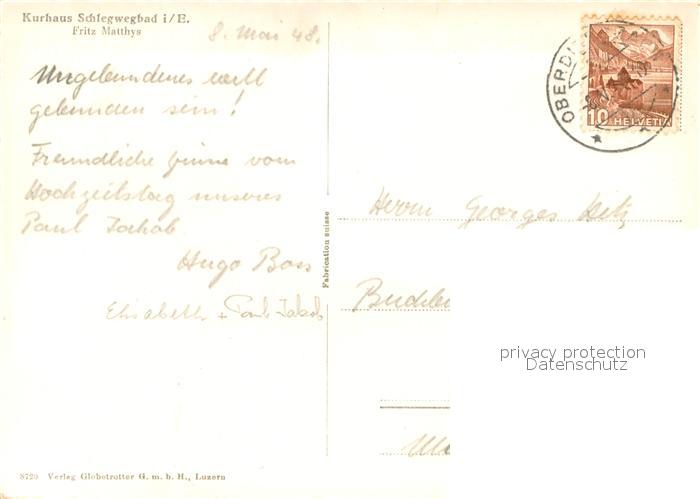 Kurhaus Schlegwegbad i/E.
Fritz Matthys
8. Mai 48.
Ungebundenes will
gebunden sein!
Freundliche Grüsse vom
Hochzeitstag unseres
Paul Jakob
Hugo Boss
Elisabeth + Paul Jakob
Fabrication suisse
OBERDI
10 HELVETIA
Herrn Georges
privacy protection
Datenschutz
8720 Verlag Globetrotter G. m. b. H., Luzern